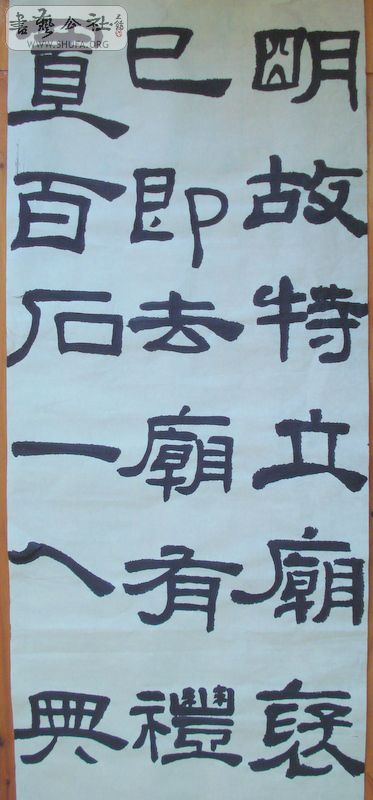 朙故特立廟褒
已即去廟有禮
置百石一人典
書藝公社
WWW.SHUFA.ORG